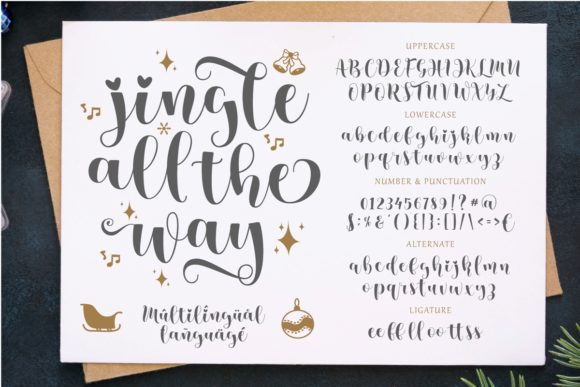 jingle
all the
way
Mûltilingùal
lañguägé
UPPERCASE
ABCDEFGHIJKLMN
OPQRSTUVWXYZ
LOWERCASE
abcdefghijklmn
opqrstuvwxyz
NUMBER & PUNCTUATION
0123456789!?#@
$;%&'(){}:[]/\<=>£
ALTERNATE
abcdefghijklmn
opqrstuvwxyz
LIGATURE
ee ff ll oo tt ss